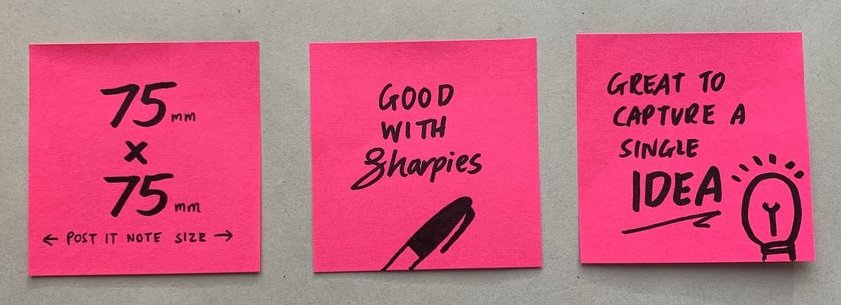 75 mm
x
75 mm
← POST IT NOTE SIZE →
GOOD
WITH
Sharpies
GREAT TO
CAPTURE A
SINGLE
IDEA